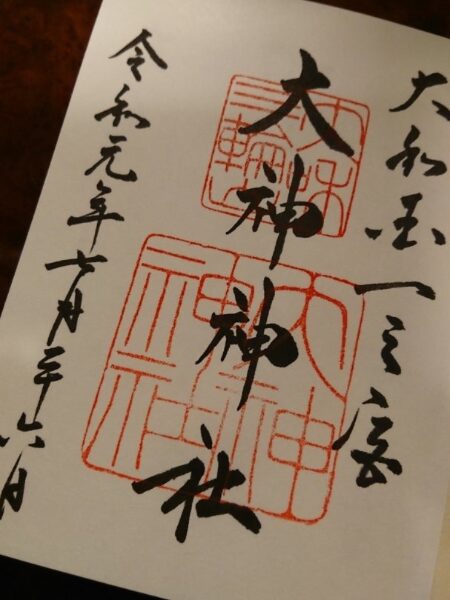 大和国一之宮
大神神社
令和元年七月二十六日
大神神社